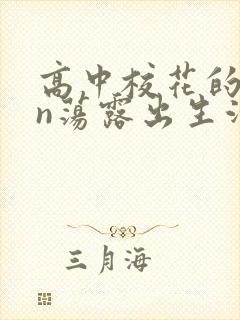 高中校花的
n荡露出生活
三月海